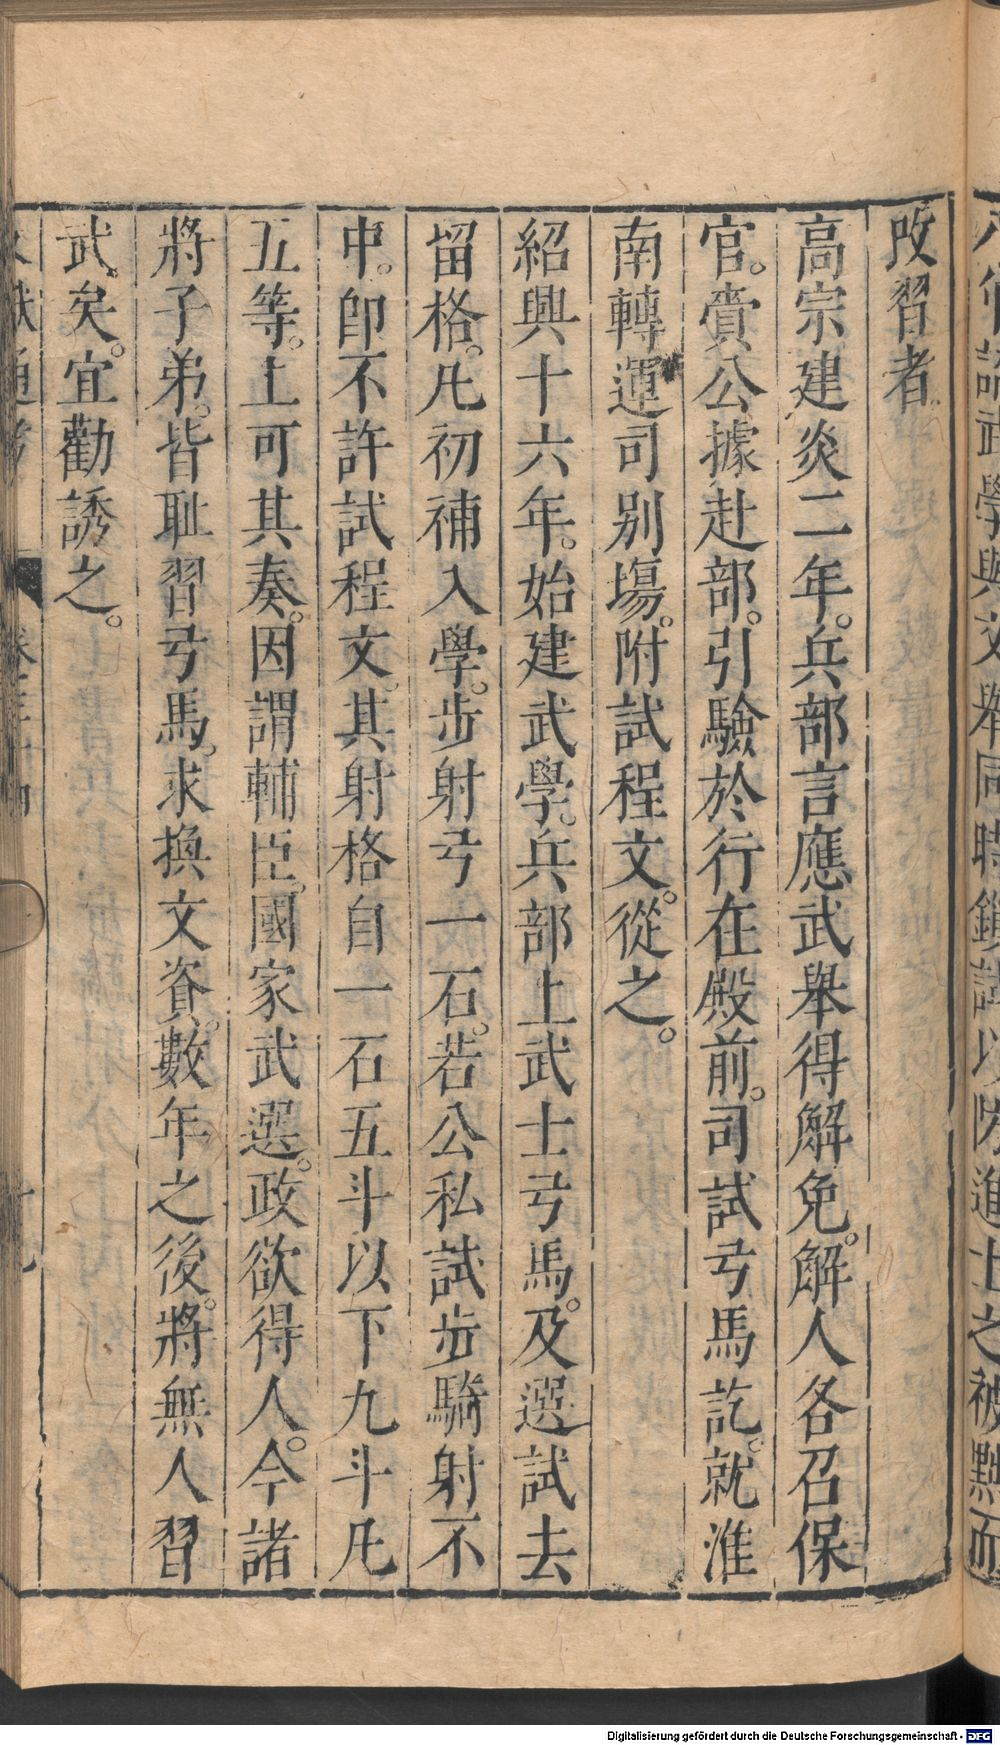 攺習者
高宗建炎二年。兵部言應武舉得解免。解人各召保
官。賫公據赴部。引驗於行在殿前。司試弓馬訖。就淮
南轉運司别塲。附試程文。從之。
紹興十六年。始建武學。兵部上武士弓馬。及選試去
留格。凡初補入學。步射弓一石。若公私試步騎射不
中。卽不許試程文。其射格自一石五斗以下九斗凡
五等。上可其奏。因謂輔臣。國家武選。政欲得人。今諸
將子弟。皆耻習弓馬。求換文資。數年之後。將無人習
武矣。宜勸誘之。
Digitalisierung gefördert durch die Deutsche Forschungsgemeinschaft - DFG